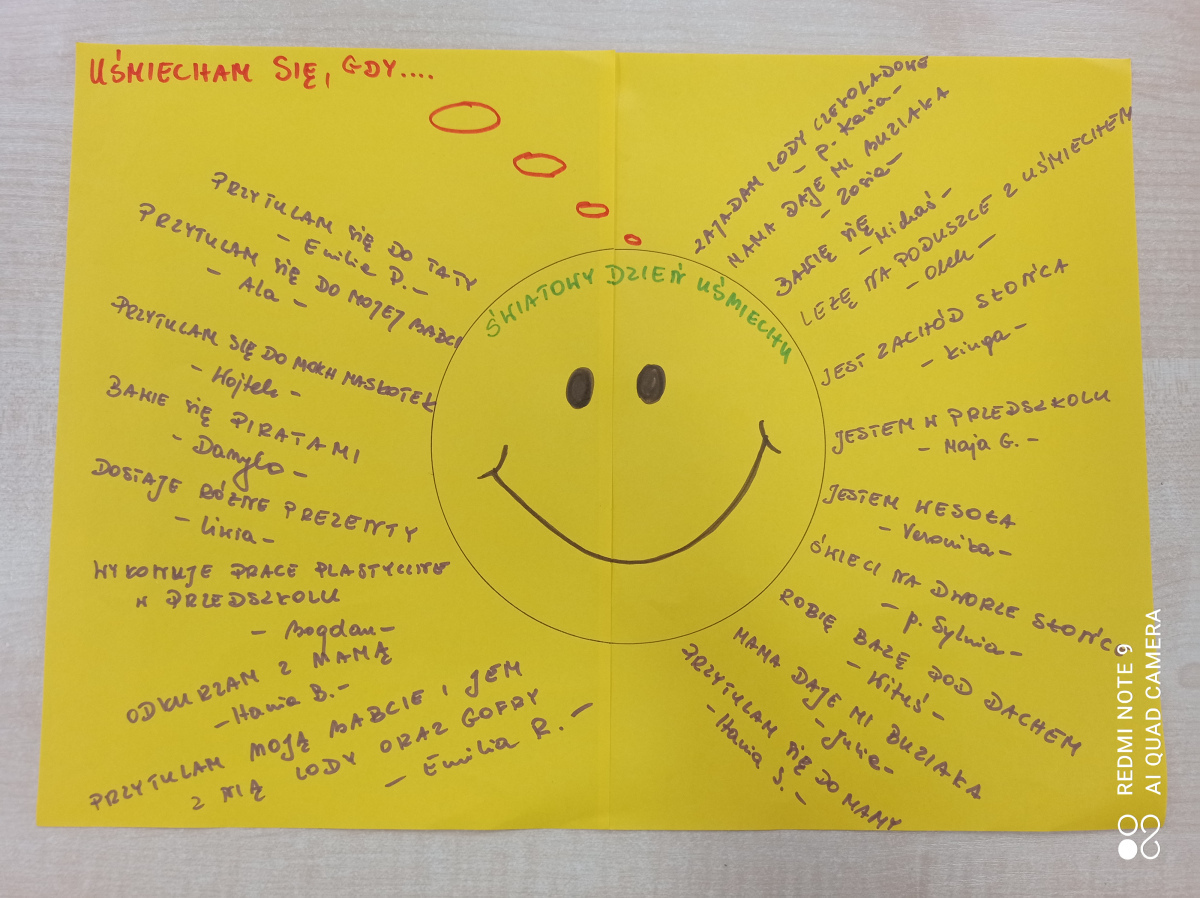 UŚMIECHAM SIĘ, GDY....
ŚWIATOWY DZIEŃ UŚMIECHU
PRZYTULAM SIĘ DO TATY
- Emilia P. -
PRZYTULAM SIĘ DO MOJEJ BABCI
- Ala -
PRZYTULAM SIĘ DO MOICH MASKOTEK
- Wojtek -
BAWIE SIĘ PIRATAMI
- Danyło -
DOSTAJE RÓŻNE PREZENTY
- Liwia -
WYKONUJE PRACE PLASTYCZNE
W PRZEDSZKOLU
- Bogdan -
ODKURZAM Z MAMĄ
- Hania B. -
PRZYTULAM MOJĄ BABCIE I JEM
Z NIĄ LODY ORAZ GOFRY
- Emilia R. -
ZAJADAM LODY CZEKOLADOWE
- p. Kasia -
MAMA DAJE MI BUZIAKA
- Zosia -
BAWIĘ SIĘ
- Michaś -
LEŻĘ NA PODUSZCE Z UŚMIECHEM
- Olek -
JEST ZACHÓD SŁOŃCA
- Kinga -
JESTEM W PRZEDSZKOLU
- Maja G. -
JESTEM WESOŁA
- Veronika -
ŚWIECI NA DWORZE SŁOŃCE
- p. Sylwia -
ROBIĘ BAZĘ POD DACHEM
- Kituś -
MAMA DAJE MI BUZIAKA
- Julia -
PRZYTULAM SIĘ DO MAMY
- Hania S. -
REDMI NOTE 9
AI QUAD CAMERA